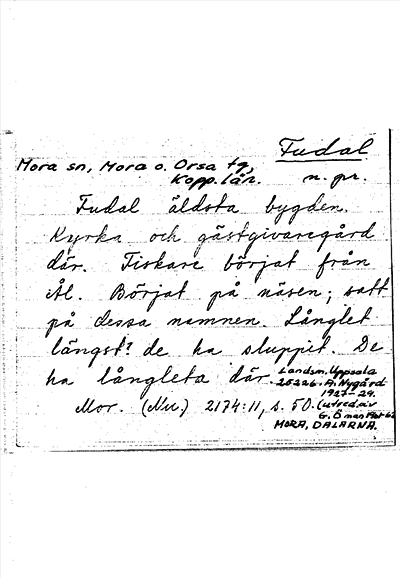 Fudal
Mora sn, Mora o. Orsa tg,
Kopp. län. n. pr.
Fudal äldsta bygden.
Kyrka och gästgivaregård
där. Fiskare börjat från
Ål. Börjat på näsen; satt
på dessa namnen. Långlet
längst? de ha sluppit. De
ha långleta där.
Mor. (Nu.) 2174:11, s. 50.
Landsm. Uppsala
25226. A. Nygård
1927-29.
(utred. av
G. Öman
MORA, DALARNA.